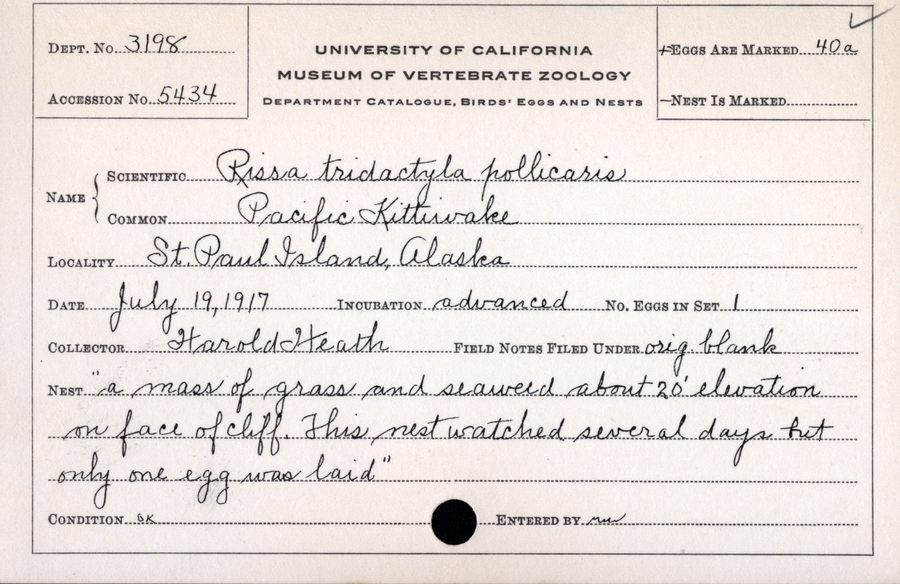 Dept. No. 3198
Accession No. 5434
UNIVERSITY OF CALIFORNIA
MUSEUM OF VERTEBRATE ZOOLOGY
Department Catalogue, Birds' Eggs and Nests
Eggs Are Marked 40a
Nest Is Marked
Name
Scientific Rissa tridactyla pollicaris
Common Pacific Kittiwake
Locality St. Paul Island, Alaska
Date July 19, 1917 Incubation advanced No. Eggs in Set 1
Collector Harold Heath Field Notes Filed Under orig. blank
Nest "a mass of grass and seaweed about 20' elevation
on face of cliff. This nest watched several days but
only one egg was laid"
Condition OK Entered by